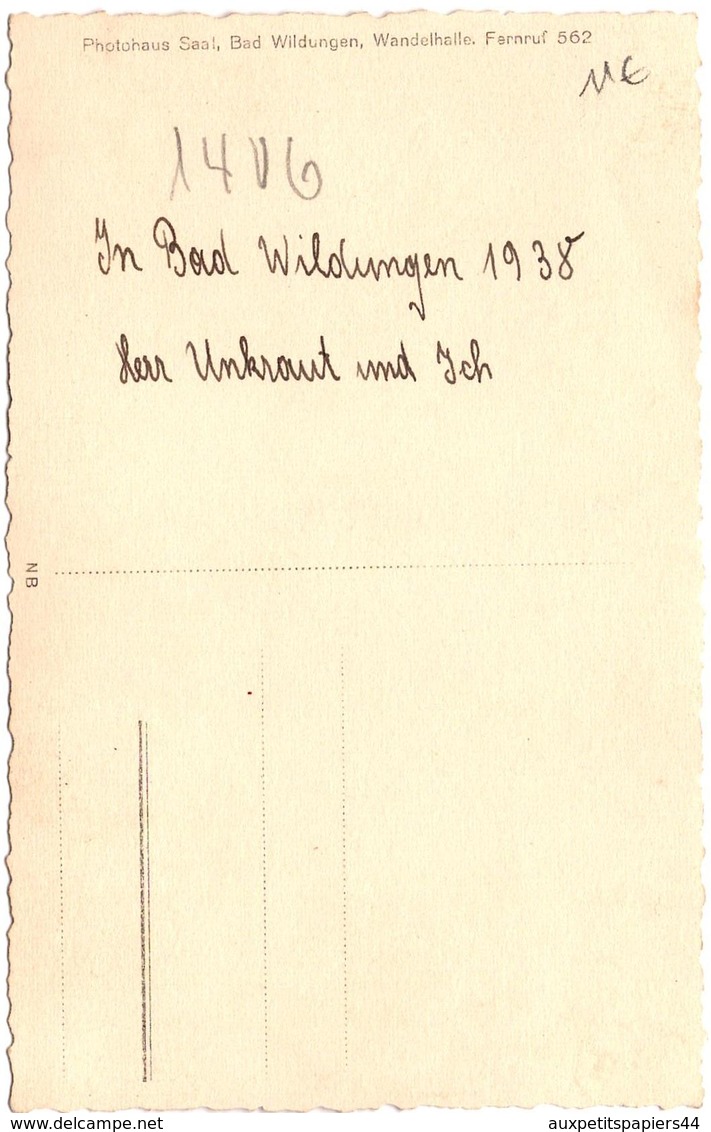 Photohaus Saal, Bad Wildungen, Wandelhalle. Fernruf 562
11€
1406
In Bad Wildungen 1938
Herr Unkraut und Ich
NB
delcampe.net
auxpetitspapiers44